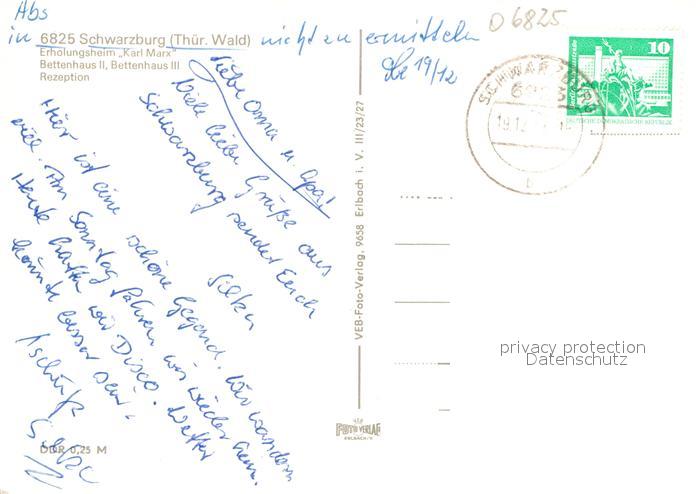 Abs
in 6825 Schwarzburg (Thür. Wald) nicht zu ermitteln
19/12
Erholungsheim „Karl Marx"
Bettenhaus II, Bettenhaus III
Rezeption
06825
SCHWARZBURG
19.12
b
10
DEUTSCHE DEMOKRATISCHE REPUBLIK
Liebe Omma u. Opa!
Viele liebe Grüße aus
Schwarzburg sendet Euch
Silke
Hier ist eine schöne Gegend. Wir wandern
viel. Am Sonntag fahren wir wieder heim.
Heute hatten wir Disco. Wetter
könnte besser sein.
Tschüß
Silke
DDR 0,25 M
VEB-Foto-Verlag, 9658 Erlbach i. V. III/23/27
FOTO VERLAG
ERLBACH/V.
privacy protection
Datenschutz